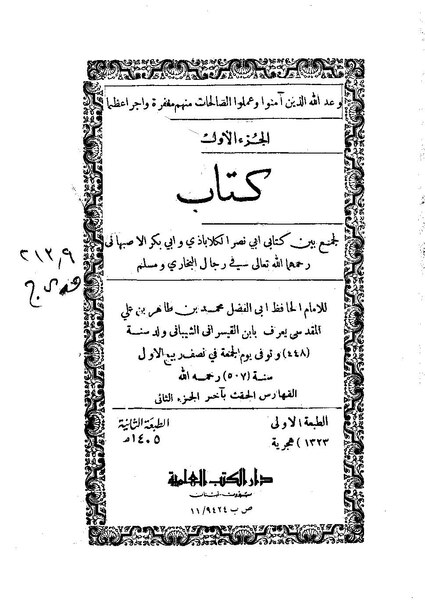 وعد الله الذين آمنوا وعملوا الصالحات منهم مغفرة واجرا عظيما
الجزء الاول
كتاب
الجمع بين كتابى ابى نصر الكلاباذي و ابى بكر الاصبهانى
رحمهما الله تعالى في رجال البخاري و مسلم
٢١٣,٩
للامام الحافظ ابى الفضل محمد بن طاهر بن علي
المقدسى يعرف بابن القيسرانى الشيبانى ولد سنة
(٤٤٨) و توفى يوم الجمعة في نصف ربيع الاول
سنة (٥٠٧) رحمه الله
الفهارس الحقت بآخر الجزء الثانى
الطبعة الاولى
١٣٢٣ ) هجرية
الطبعة الثانية
١٤٠٥ه
دار الكتب العلمية
بيروت. لبنان
ص ب ١١/٩٤٢٤